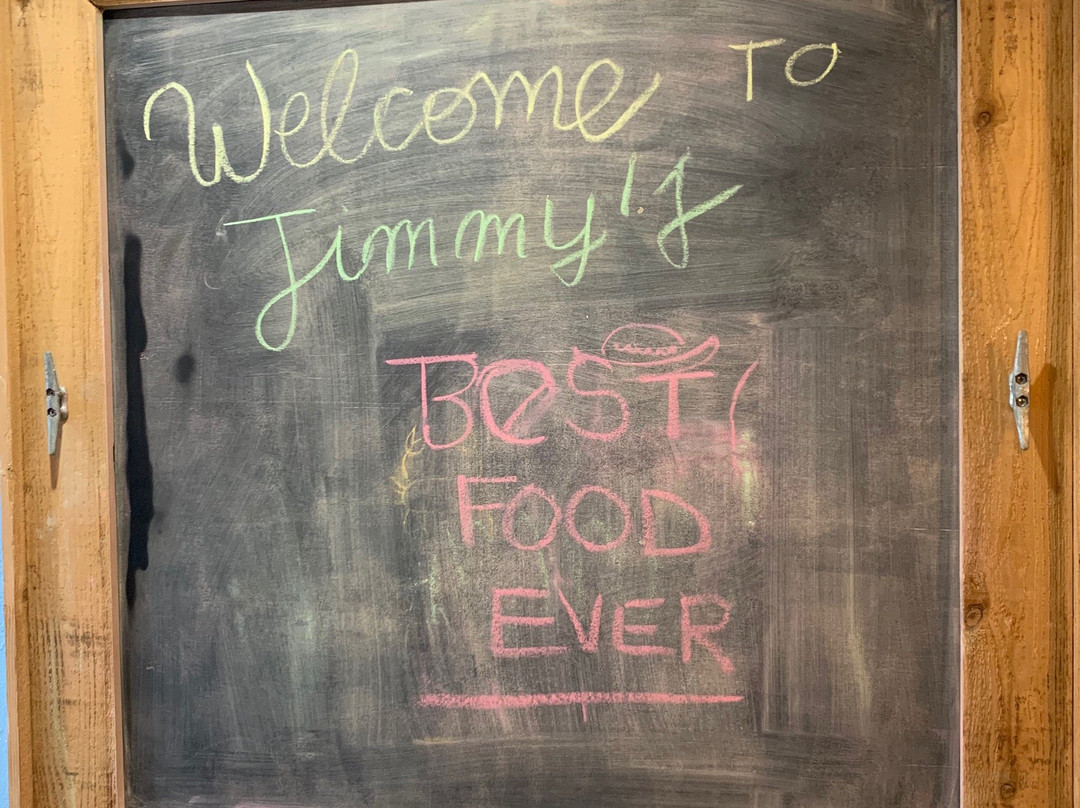 Welcome TO
Jimmy's
BeST
FOOD
EVER